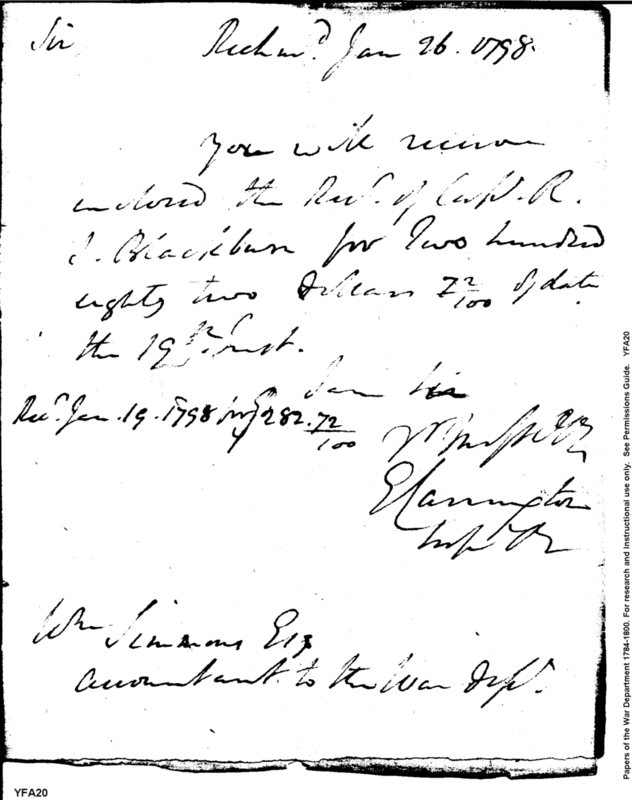 Sir, Richmd. Jan 26. 1798.
You will receive
enclosed the Rect. of Capt. R.
J. Blackburn for Two hundred
eighty two dollars 72/100 of date
the 19th Inst.
I am Sir
Rect. Jan. 19. 1798 for $282.72/100
E Carrington
Wm Simmons Esq
accountant to the War Dept.
YFA20
Papers of the War Department 1784-1800. For research and instructional use only. See Permissions Guide. YFA20